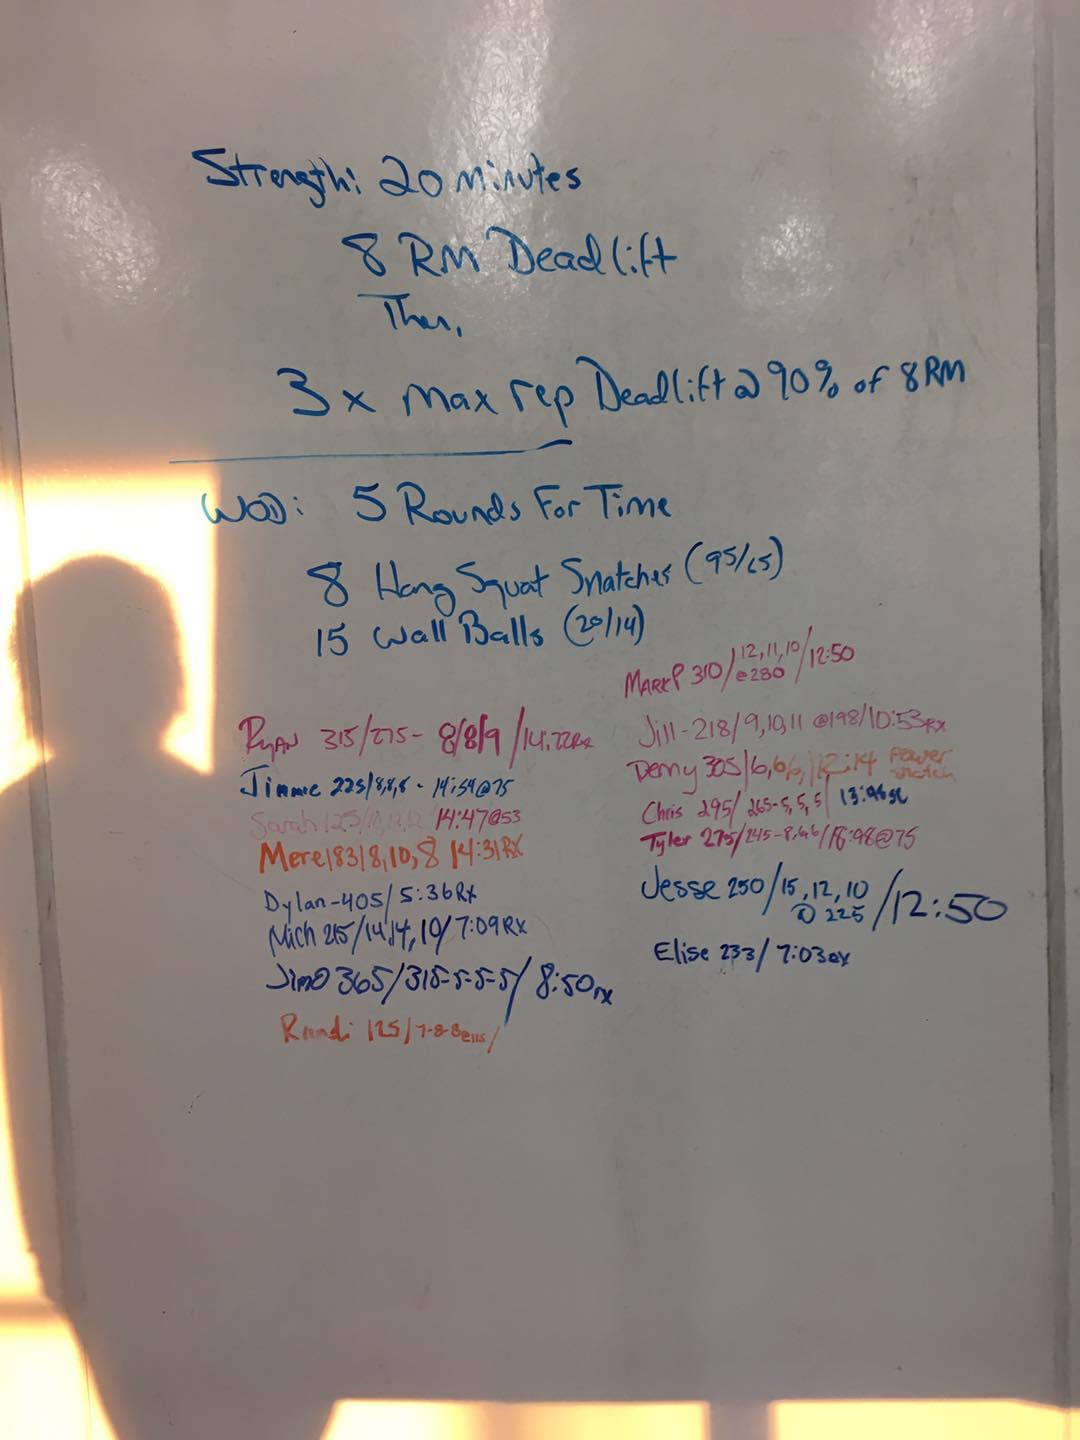 Strength: 20 minutes
8 RM Deadlift
Then,
3 x max rep Deadlift @ 90% of 8RM
WOD: 5 Rounds For Time
8 Hang Squat Snatches (95/65)
15 Wall Balls (20/14)
Ryan 315/275- 8/8/9 /14:22Rx
Jimmie 225/8,8,8 - 14:59@75
Sarah 125/ 14:47@53
Mere 183/8,10,8 14:31RX
Dylan-405/5:36Rx
Mich 215/14,14,10/7:09Rx
JimO 365/315-5-5-5/8:50rx
Randi 125/7-8-8@115/
MARK P 310/12,11,10 @280/12:50
Jill-218/9,10,11 @198/10:53Rx
Demy 305/6,6,6,/12:14 Power Snatch
Chris 295/265-5,5,5/
Tyler 275/245-8,6,6/ @75
Jesse 250/15,12,10 @ 225/12:50
Elise 233/7:03